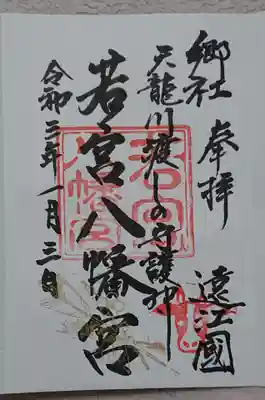 奉拝
遠江國
郷社
天龍川渡しの守護神
若宮八幡宮
令和三年一月三日
若宮八幡宮